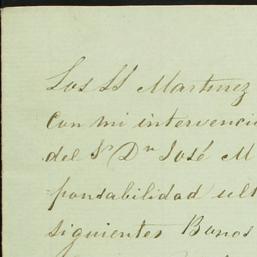 Los SS Martinez
con mi intervenci
del Sr Dn José M
ponsabilidad ult
siguientes Bonos